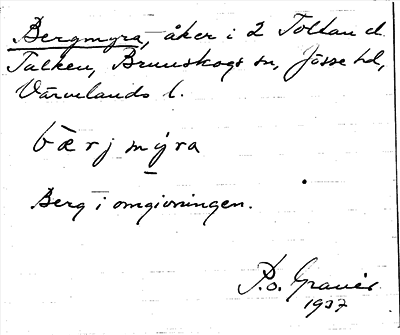 Bergmyra, åker i 2 Tottan d.
Takken, Brunskogs sn, Jösse hd,
Värmlands l.
bærjmýra
Berg i omgivningen.
P.o. Graner
1937